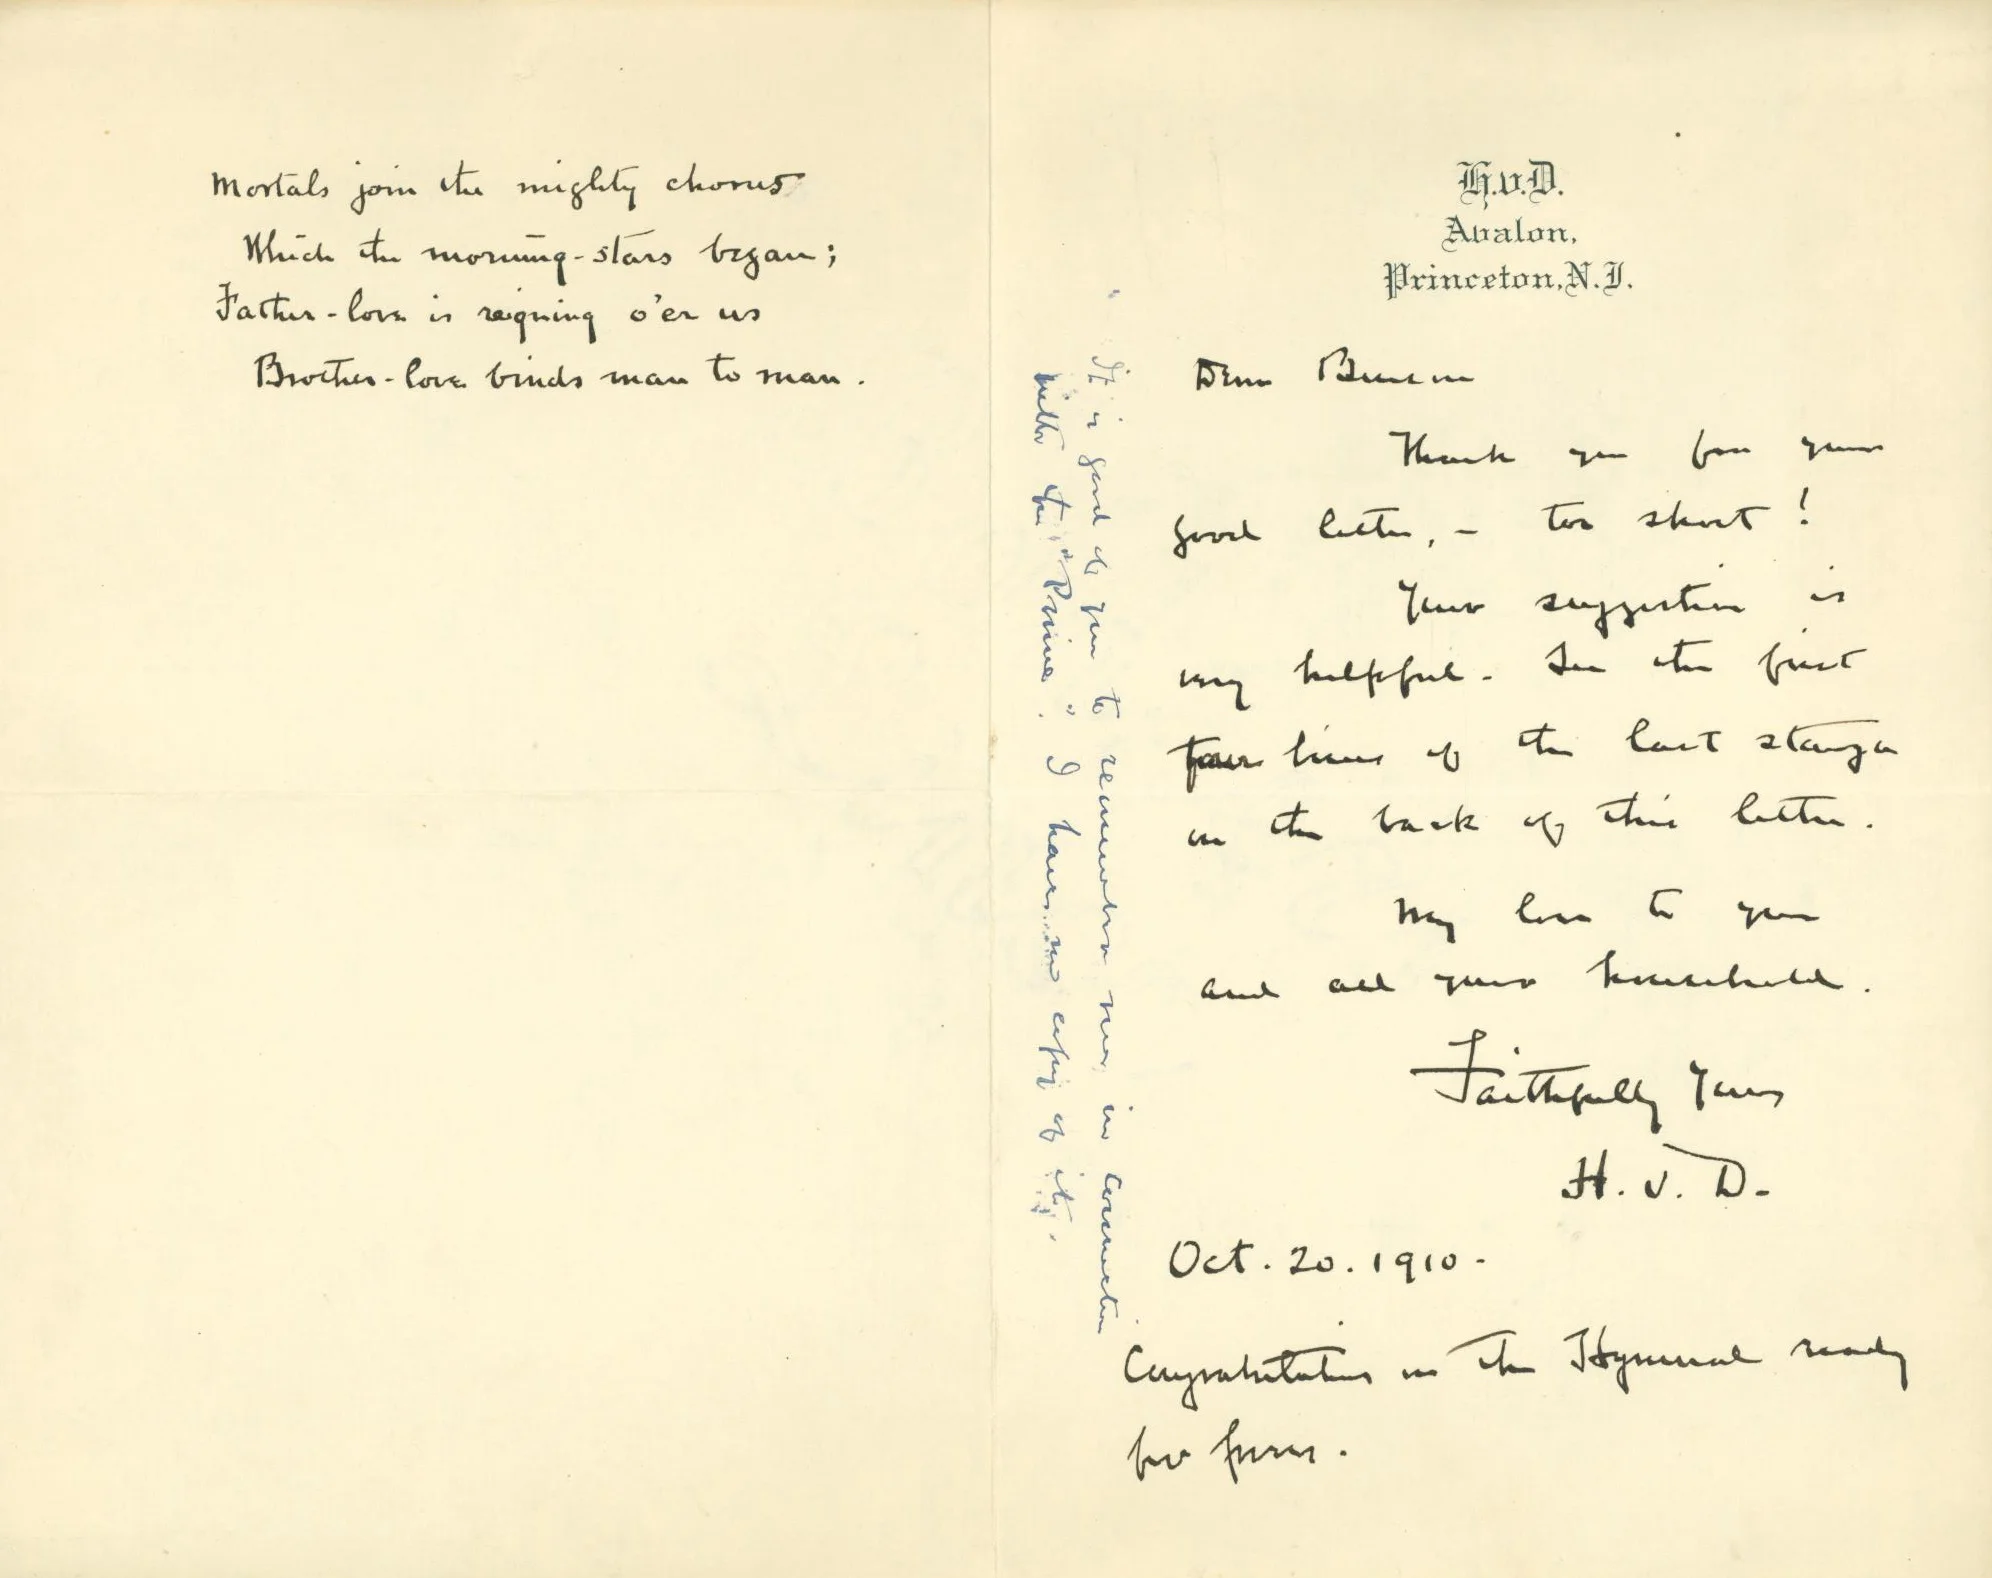 Mortals join the mighty chorus
Which the morning-stars began;
Father-love is reigning o'er us
Brother-love binds man to man.
H.v.D.
Avalon,
Princeton, N.J.
Dear Benson
Thank you for your
good letter, - too short!
Your suggestion is
very helpful. See the first
four lines of the last stanza
on the back of this letter.
My love to you
and all your household.
Faithfully Yours
H. v. D.
Oct. 20. 1910.
Congratulations on the Hymnal ready
for press.
It is good of you to remember me in connection
with the "Prince". I have no copy of it.